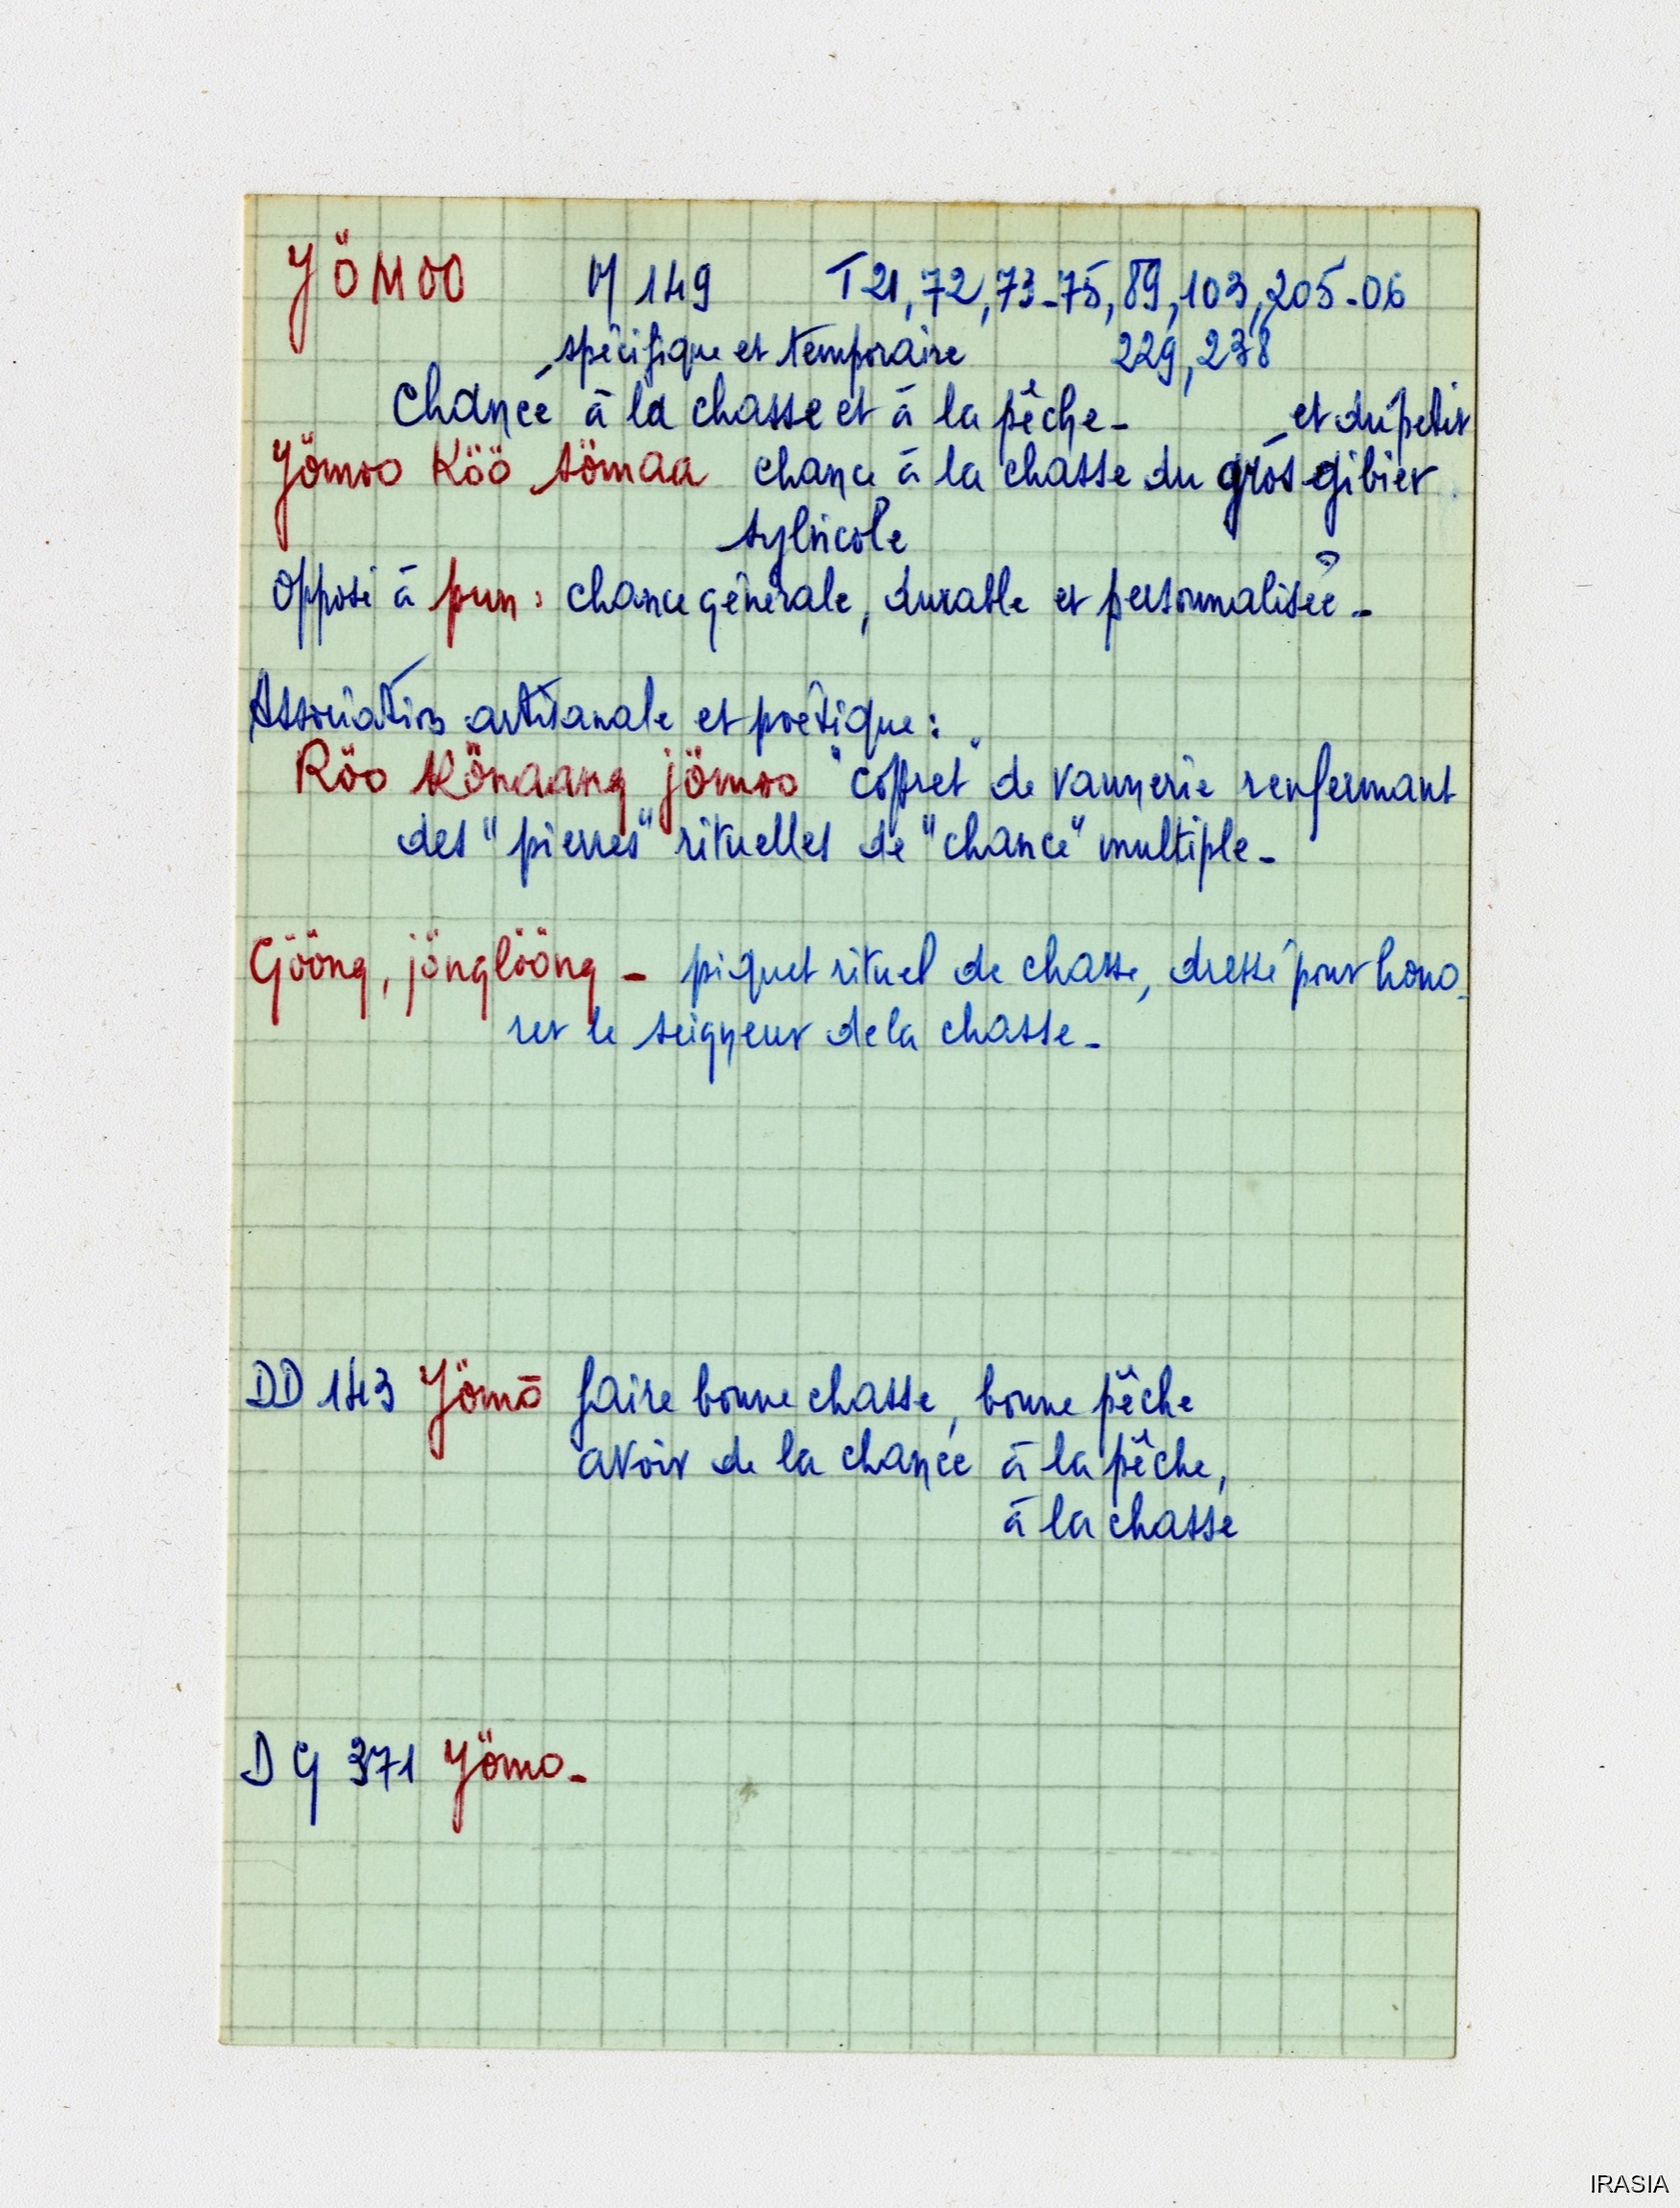 YÖMOO M 149 T 21, 72, 73-75, 89, 103, 205-06
spécifique et temporaire 229, 238
Chance à la chasse et à la pêche - et du petit
Yömoo Köö sömaa chance à la chasse du gros gibier
sylvicole
Opposé à pun : chance générale, durable et personnalisée -
Association artisanale et poétique :
Röo Könaang jömoo "coffret" de vannerie renfermant
des "pierres" rituelles de "chance" multiple -
Gööng, jönglööng - piquet rituel de chasse, dressé pour hono-
rer le seigneur de la chasse -
DD 143 Yömō faire bonne chasse, bonne pêche
avoir de la chance à la pêche,
à la chasse
DG 371 Yömo -
IRASIA